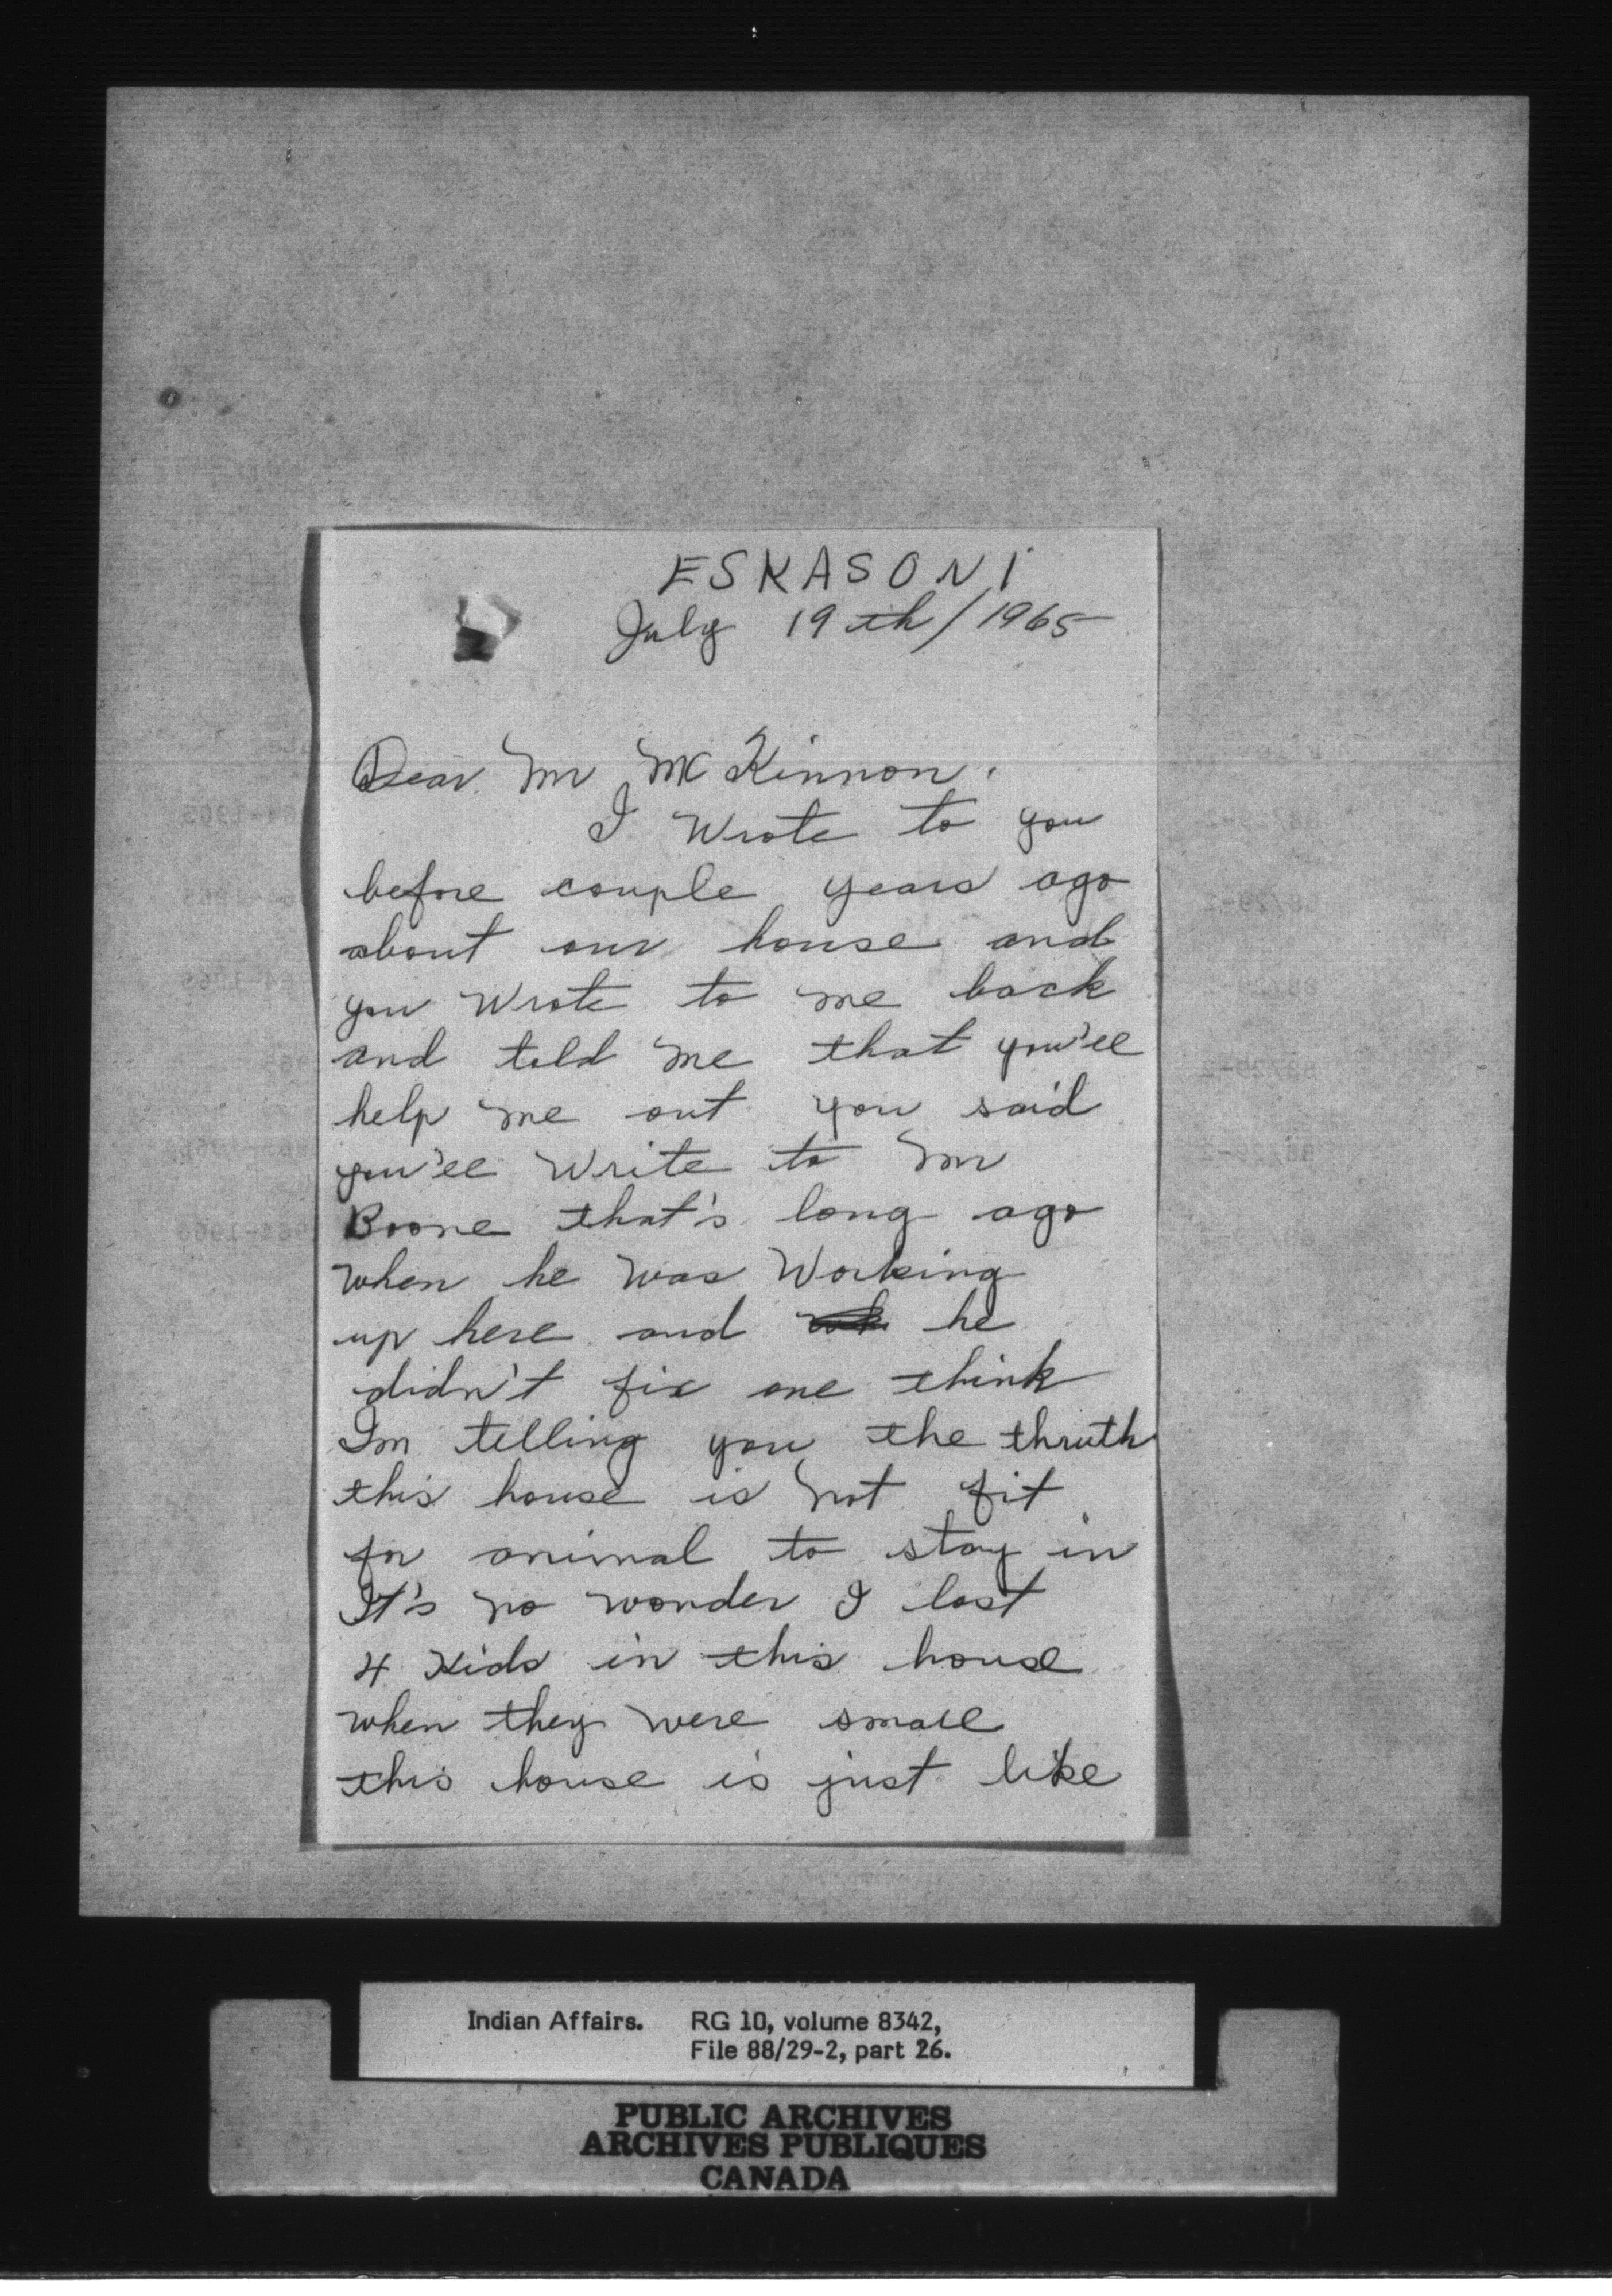 ESKASONI
July 19th/1965
Dear Mr McKinnon.
I Wrote to you
before couple years ago
about our house and
you Wrote to me back
and told me that you'll
help me out you said
you'll Write to Mr
Boone that's long ago
when he was Working
up here and he
didn't fix one think
Im telling you the thruth
this house is not fit
for animal to stay in
It's no wonder I lost
4 Kids in this house
when they were small
this house is just like
Indian Affairs. RG 10, volume 8342,
File 88/29-2, part 26.
PUBLIC ARCHIVES
ARCHIVES PUBLIQUES
CANADA